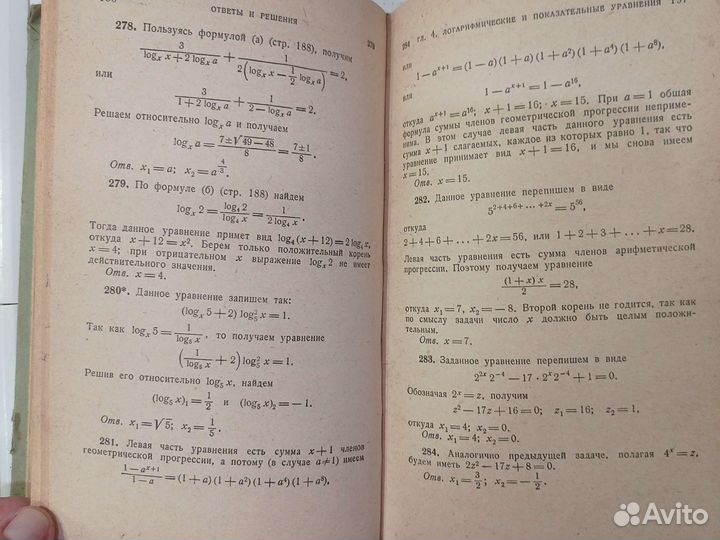 ОТВЕТЫ И РЕШЕНИЯ
278. Пользуясь формулой (а) (стр. 188), получим
3/(log_x x + 2 log_x a) + 1/(2(log_x x − 1/2 log_x a)) = 2,
или
3/(1 + 2 log_x a) + 1/(2 − log_x a) = 2.
Решаем относительно log_x a и получаем
log_x a = (7 ± √(49 − 48))/8 = (7 ± 1)/8.
Отв. x₁ = a; x₂ = a^(4/3).
279. По формуле (б) (стр. 188) найдем
log_x 2 = log₄ 2/log₄ x = 1/(2 log₄ x).
Тогда данное уравнение примет вид log₄ (x + 12) = 2 log₄ x,
откуда x + 12 = x². Берем только положительный корень
x = 4; при отрицательном x выражение log_x 2 не имеет
действительного значения.
Отв. x = 4.
280*. Данное уравнение запишем так:
(log_x 5 + 2) log₅² x = 1.
Так как log_x 5 = 1/(log₅ x), то получаем уравнение
(1/(log₅ x) + 2) log₅² x = 1.
Решив его относительно log₅ x, найдем
(log₅ x)₁ = 1/2 и (log₅ x)₂ = −1.
Отв. x₁ = √5; x₂ = 1/5.
281. Левая часть уравнения есть сумма x + 1 членов
геометрической прогрессии, а потому (в случае a ≠ 1) имеем
(1 − a^(x+1))/(1 − a) = (1 + a)(1 + a²)(1 + a⁴)(1 + a⁸),
284 ГЛ. 4. ЛОГАРИФМИЧЕСКИЕ И ПОКАЗАТЕЛЬНЫЕ УРАВНЕНИЯ
или
1 − a^(x+1) = (1 − a)(1 + a)(1 + a²)(1 + a⁴)(1 + a⁸),
или
1 − a^(x+1) = 1 − a¹⁶,
откуда a^(x+1) = a¹⁶; x + 1 = 16; x = 15. При a = 1 общая
формула суммы членов геометрической прогрессии неприме-
нима. В этом случае левая часть данного уравнения есть
сумма x + 1 слагаемых, каждое из которых равно 1, так что
уравнение принимает вид x + 1 = 16, и мы снова имеем
x = 15.
Отв. x = 15.
282. Данное уравнение перепишем в виде
5^(2+4+6+ ... +2x) = 5⁵⁶,
откуда
2 + 4 + 6 + ... + 2x = 56, или 1 + 2 + 3 + ... + x = 28.
Левая часть уравнения есть сумма членов арифметической
прогрессии. Поэтому получаем уравнение
(1 + x) x/2 = 28,
откуда x₁ = 7, x₂ = −8. Второй корень не годится, так как
по смыслу задачи число x должно быть целым положи-
тельным.
Отв. x = 7.
283. Заданное уравнение перепишем в виде
2^(2x) 2⁻⁴ − 17 · 2^x 2⁻⁴ + 1 = 0.
Обозначая 2^x = z, получим
z² − 17z + 16 = 0; z₁ = 16; z₂ = 1,
откуда x₁ = 4; x₂ = 0.
Отв. x₁ = 4; x₂ = 0.
284. Аналогично предыдущей задаче, полагая 4^x = z,
будем иметь 2z² − 17z + 8 = 0.
Отв. x₁ = 3/2; x₂ = −1/2.
Avito